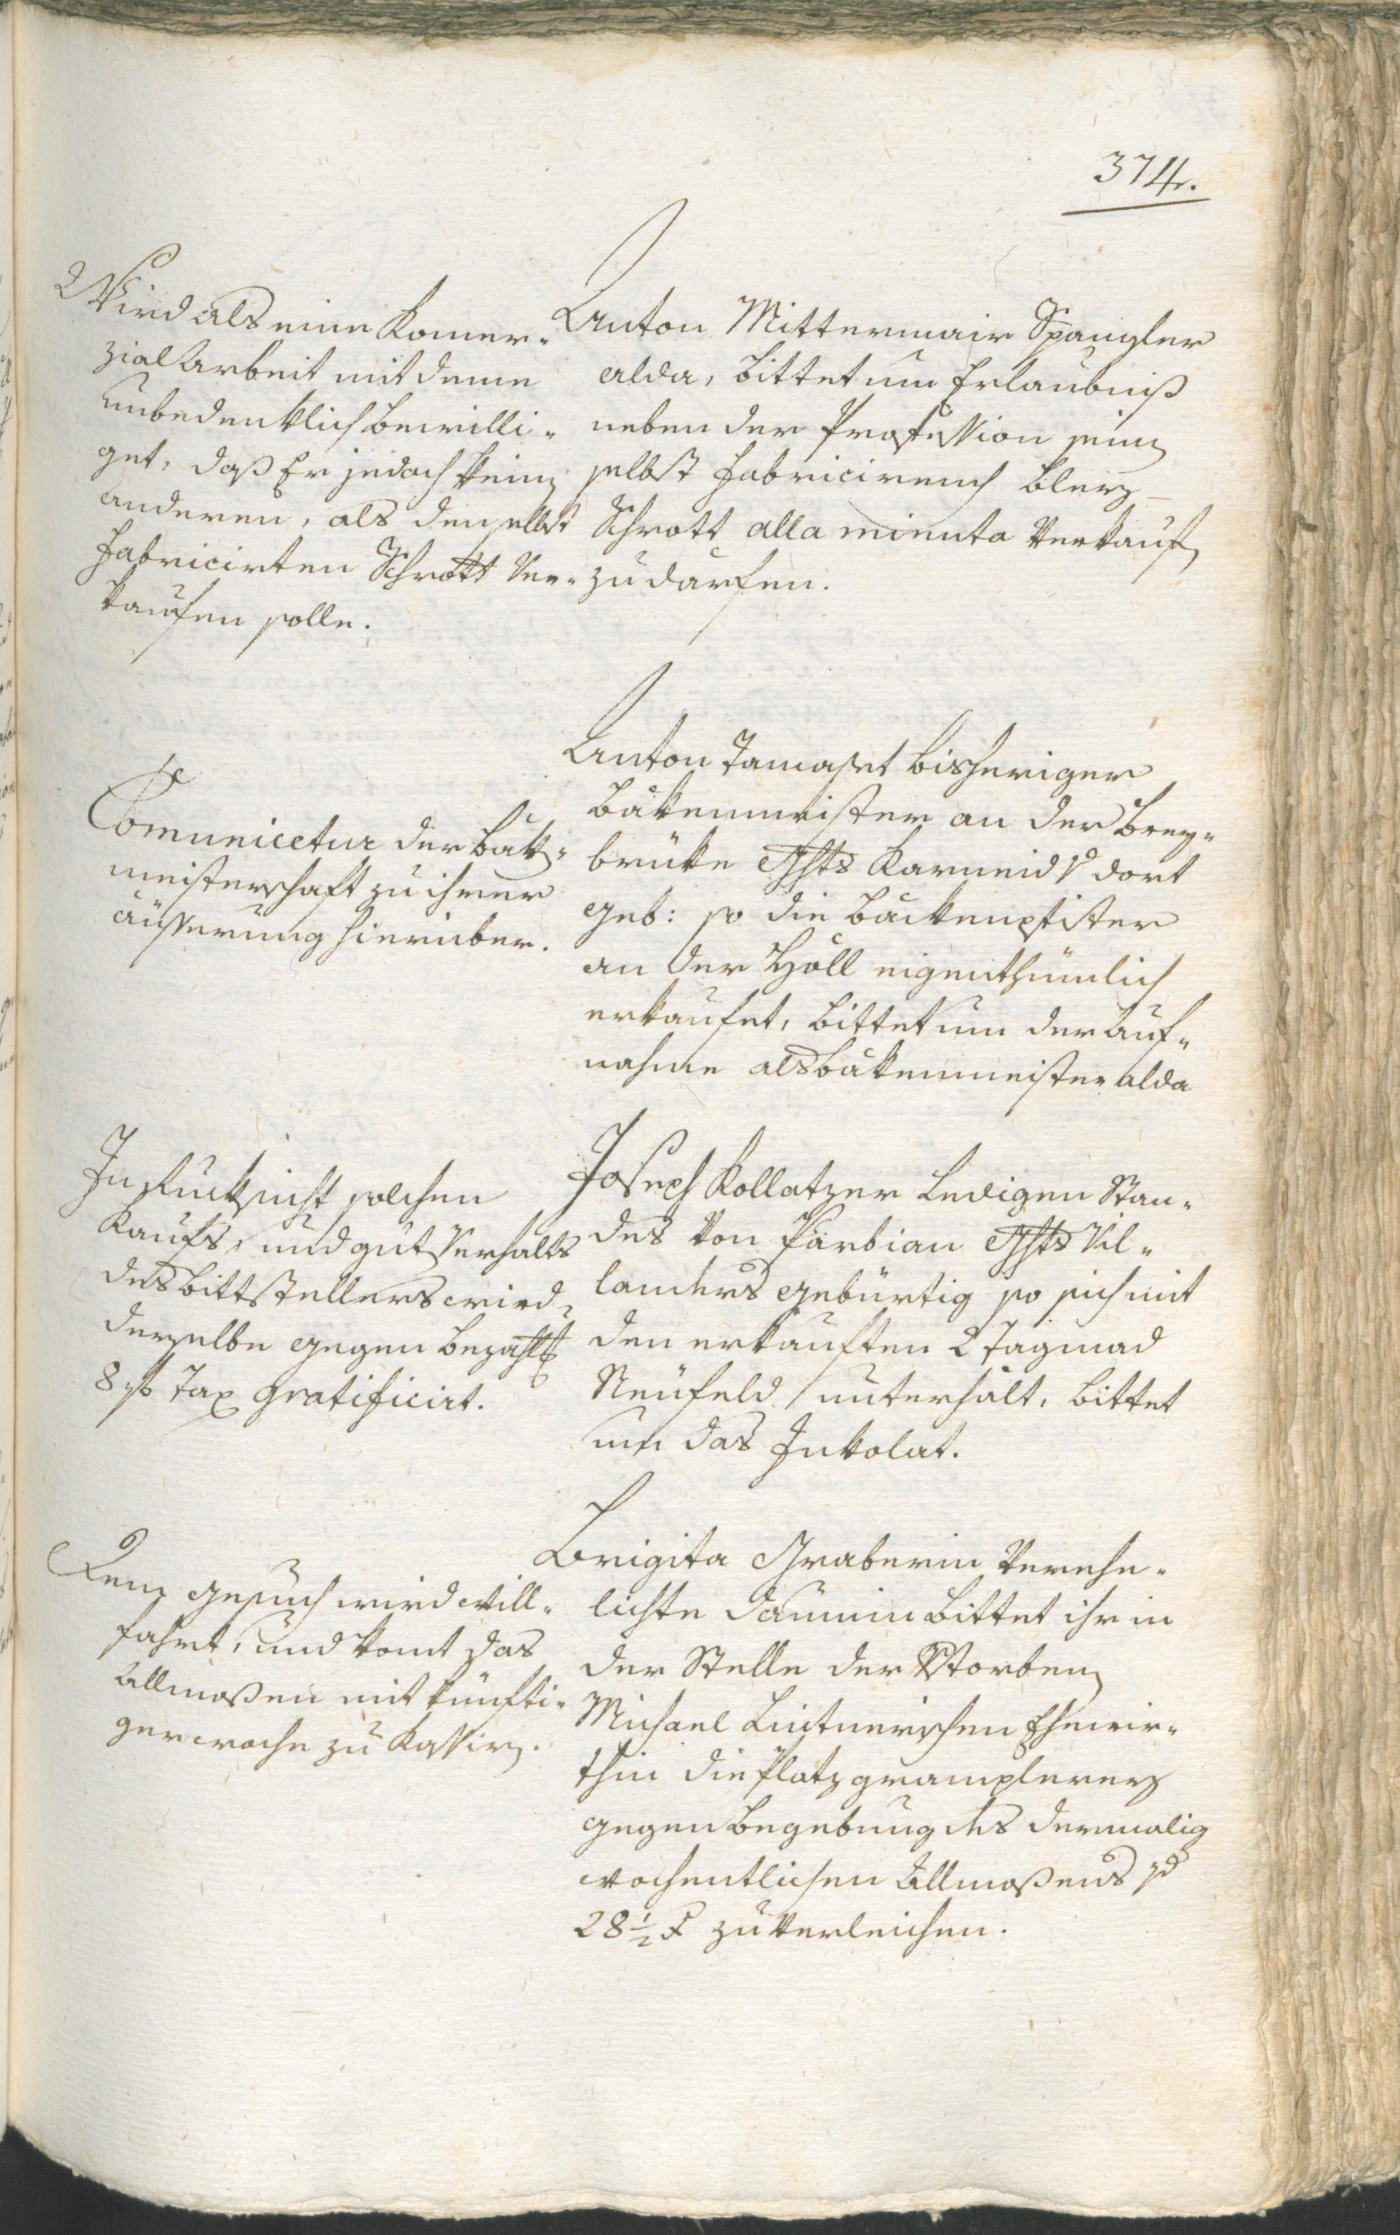 374.
Wird als eine Komer-
zial Arbeit mit deme
unbedenklich bewilli-
get, daß Er jedoch kein
anderen, als den selbst
Fabricirten Schrott ver-
kaufen solle.
Anton Mittermair Spangler
alda, bittet um Erlaubniß
neben der Profession sein
selbst Fabricirend bley-
Schrott alla minuta verkauf
zu därfen.
Comunicetur der bäk-
meisterschaft zu ihrer
äusserung hierüber.
Anton Tamaset bisheriger
bäkenmeister an der Brey-
brüke Ghts Karneid v dort
geb: so die bäckenpfister
an der Höll eigenthümlich
erkaufet, bittet um der auf-
nahme als bäkenmeister alda
In Rucksicht solchen
Kaufs, und gut Verhalts
des bittstellers wird
derselbe gegen bezahlg
8 f Tax gratificirt.
Joseph Kollatzer Ledigen Stan-
des von Parbian Ghts Vil-
landers gebürtig so sich mit
den erkauften 2 Tagmad
Neufeld unterhält, bittet
um das Inkolat.
Dem gesuch wird will-
fahrt, und komt das
Allmoßen mit künfti-
ger woche zu Kassirn.
Brigita Graberin verehe-
lichte Daumin bittet ihr in
der Stelle der Vstorben
Michael Lintnerischen Ehewir-
thin die Platzgramplerey
gegen begebung des dermalig
wochentlichen Allmoßens pd
28 1/2 x zu verleichen.